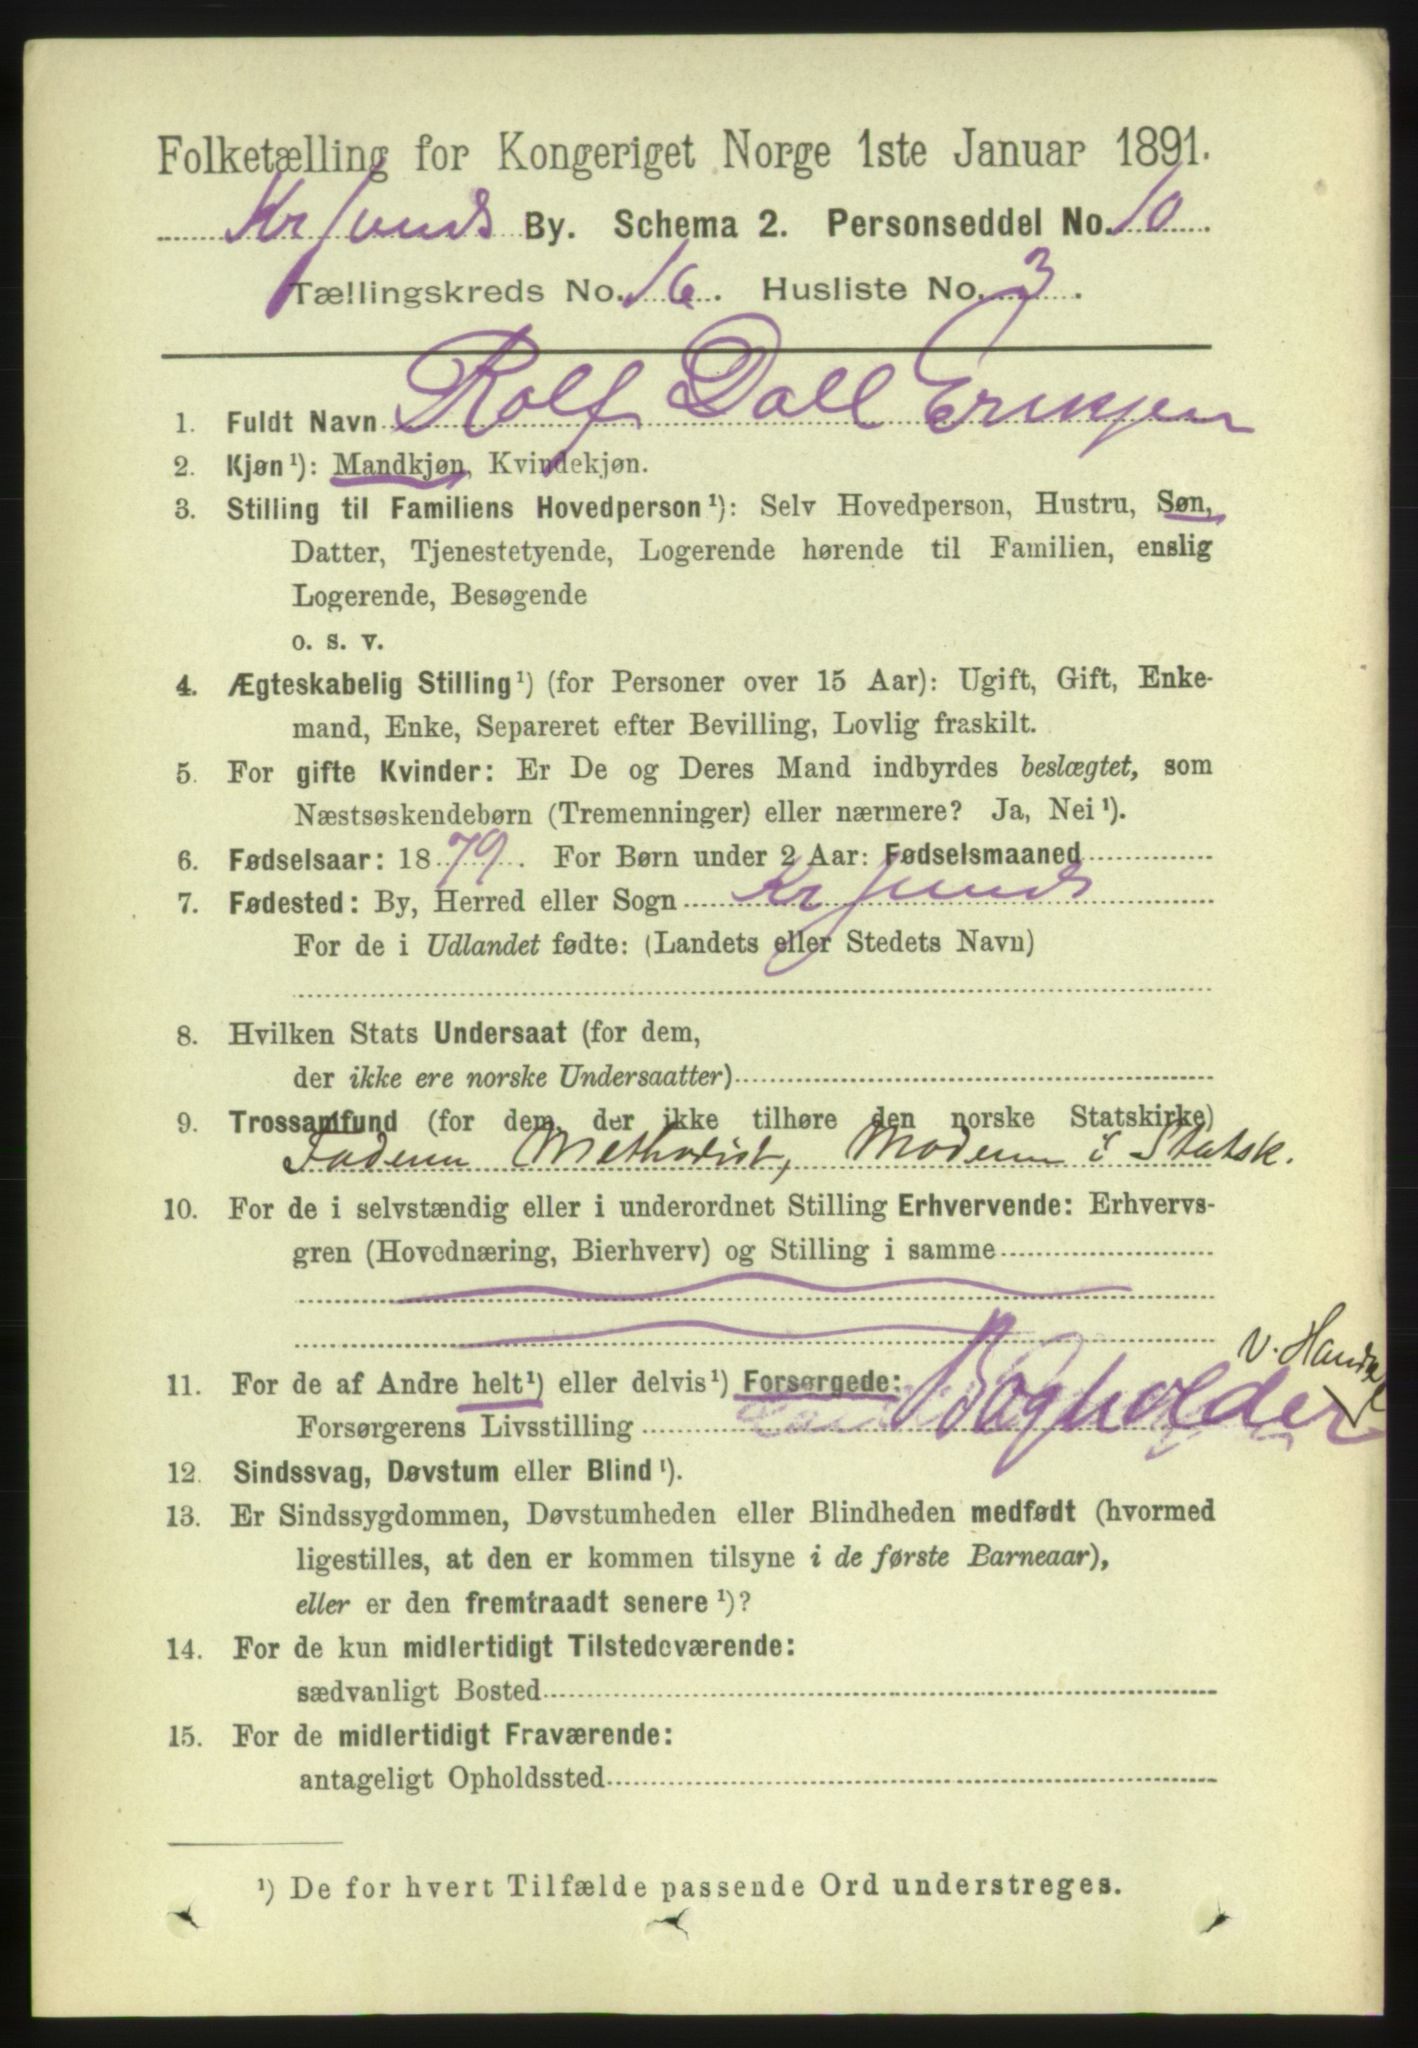 Folketælling for Kongeriget Norge 1ste Januar 1891.
Kr sunds By. Schema 2. Personseddel No. 10
Tællingskreds No. 16. Husliste No. 3.
1. Fuldt Navn Rolf Dall Eriksen
2. Kjøn¹): Mandkjøn, Kvindekjøn.
3. Stilling til Familiens Hovedperson¹): Selv Hovedperson, Hustru, Søn,
Datter, Tjenestetyende, Logerende hørende til Familien, enslig
Logerende, Besøgende
o. s. v.
4. Ægteskabelig Stilling¹) (for Personer over 15 Aar): Ugift, Gift, Enke-
mand, Enke, Separeret efter Bevilling, Lovlig fraskilt.
5. For gifte Kvinder: Er De og Deres Mand indbyrdes beslægtet, som
Næstsøskendebørn (Tremenninger) eller nærmere? Ja, Nei¹).
6. Fødselsaar: 1879. For Børn under 2 Aar: Fødselsmaaned
7. Fødested: By, Herred eller Sogn Kr sunds
For de i Udlandet fødte: (Landets eller Stedets Navn)
8. Hvilken Stats Undersaat (for dem,
der ikke ere norske Undersaatter)
9. Trossamfund (for dem, der ikke tilhøre den norske Statskirke)
Faderen Methodist, Moderen i Statsk.
10. For de i selvstændig eller i underordnet Stilling Erhvervende: Erhvervs-
gren (Hovednæring, Bierhverv) og Stilling i samme
11. For de af Andre helt¹) eller delvis¹) Forsørgede:
Forsørgerens Livsstilling Bogholder v. Handel
12. Sindssvag, Døvstum eller Blind¹).
13. Er Sindssygdommen, Døvstumheden eller Blindheden medfødt (hvormed
ligestilles, at den er kommen tilsyne i de første Barneaar),
eller er den fremtraadt senere¹)?
14. For de kun midlertidigt Tilstedeværende:
sædvanligt Bosted
15. For de midlertidigt Fraværende:
antageligt Opholdssted
¹) De for hvert Tilfælde passende Ord understreges.